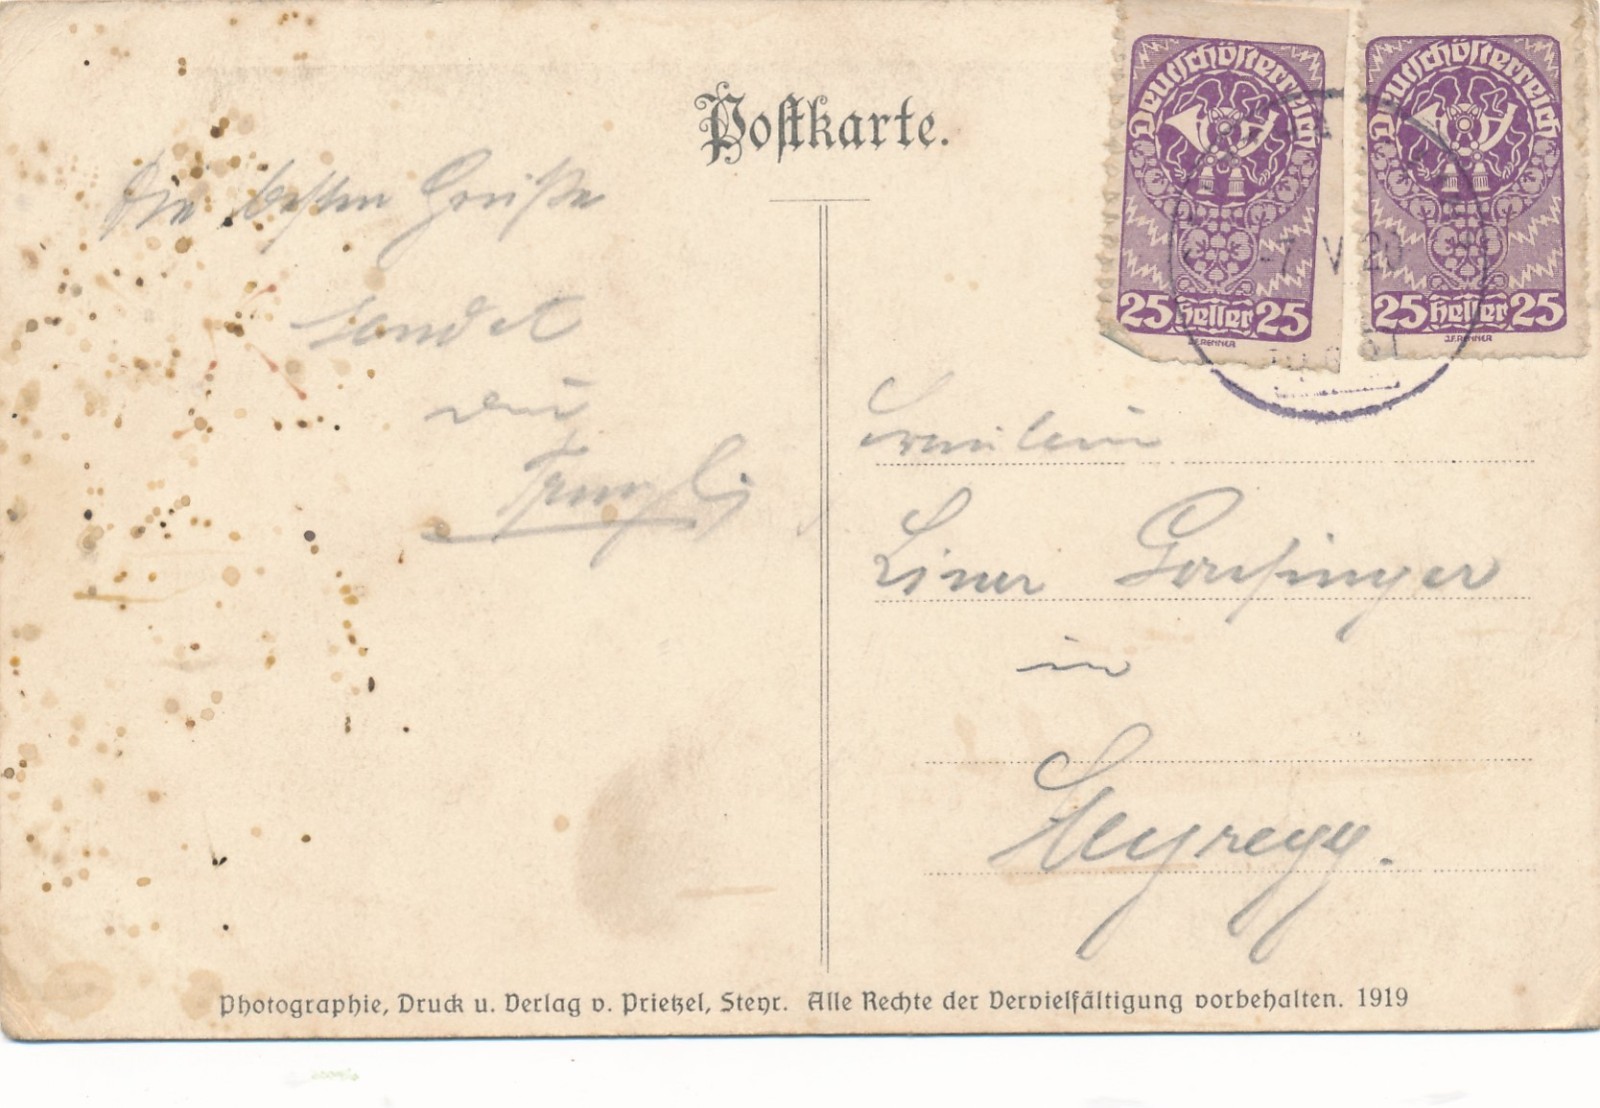 Postkarte.
Deutschösterreich
25 Heller 25
J.F.RENNER
Deutschösterreich
25 Heller 25
J.F.RENNER
-7 V 20
Die besten Grüße
sendet
Fräulein
in
Steyregg.
Photographie, Druck u. Verlag v. Prietzel, Steyr. Alle Rechte der Vervielfältigung vorbehalten. 1919